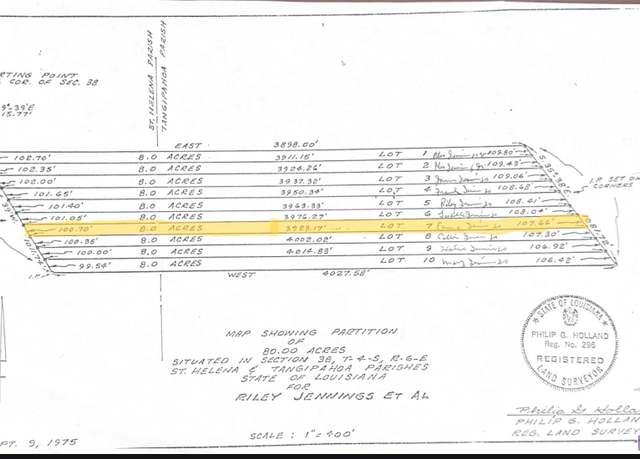 ST. HELENA PARISH
TANGIPAHOA PARISH
RTING POINT
COR. OF SEC. 38
9°-39'E
15.77'
EAST 3898.00'
102.70' 8.0 ACRES 3911.15' LOT 1 109.80'
102.35' 8.0 ACRES 3924.26' LOT 2 109.43'
102.00' 8.0 ACRES 3937.32' LOT 3 109.06'
101.65' 8.0 ACRES 3950.34' LOT 4 108.68'
101.40' 8.0 ACRES 3963.33' LOT 5 Riley Jennings 108.41'
101.05' 8.0 ACRES 3976.27' LOT 6 108.04'
100.70' 8.0 ACRES LOT 7 107.66'
100.35' 8.0 ACRES 4002.02' LOT 8 107.30'
100.00' 8.0 ACRES 4014.83' LOT 9 106.92'
99.54' 8.0 ACRES LOT 10 106.42'
WEST 4027.58'
I.P.
I.P. SET ON
CORNERS
MAP SHOWING PARTITION
OF
80.00 ACRES
SITUATED IN SECTION 38, T-4-S, R-6-E
ST. HELENA & TANGIPAHOA PARISHES
STATE OF LOUISIANA
FOR
RILEY JENNINGS ET AL
SCALE : 1" = 400'
PT. 9, 1975
STATE OF LOUISIANA
PHILIP G. HOLLAND
Reg. No. 296
REGISTERED
LAND SURVEYOR
Philip G. Holla
PHILIP G. HOLLAN
REG. LAND SURVEY